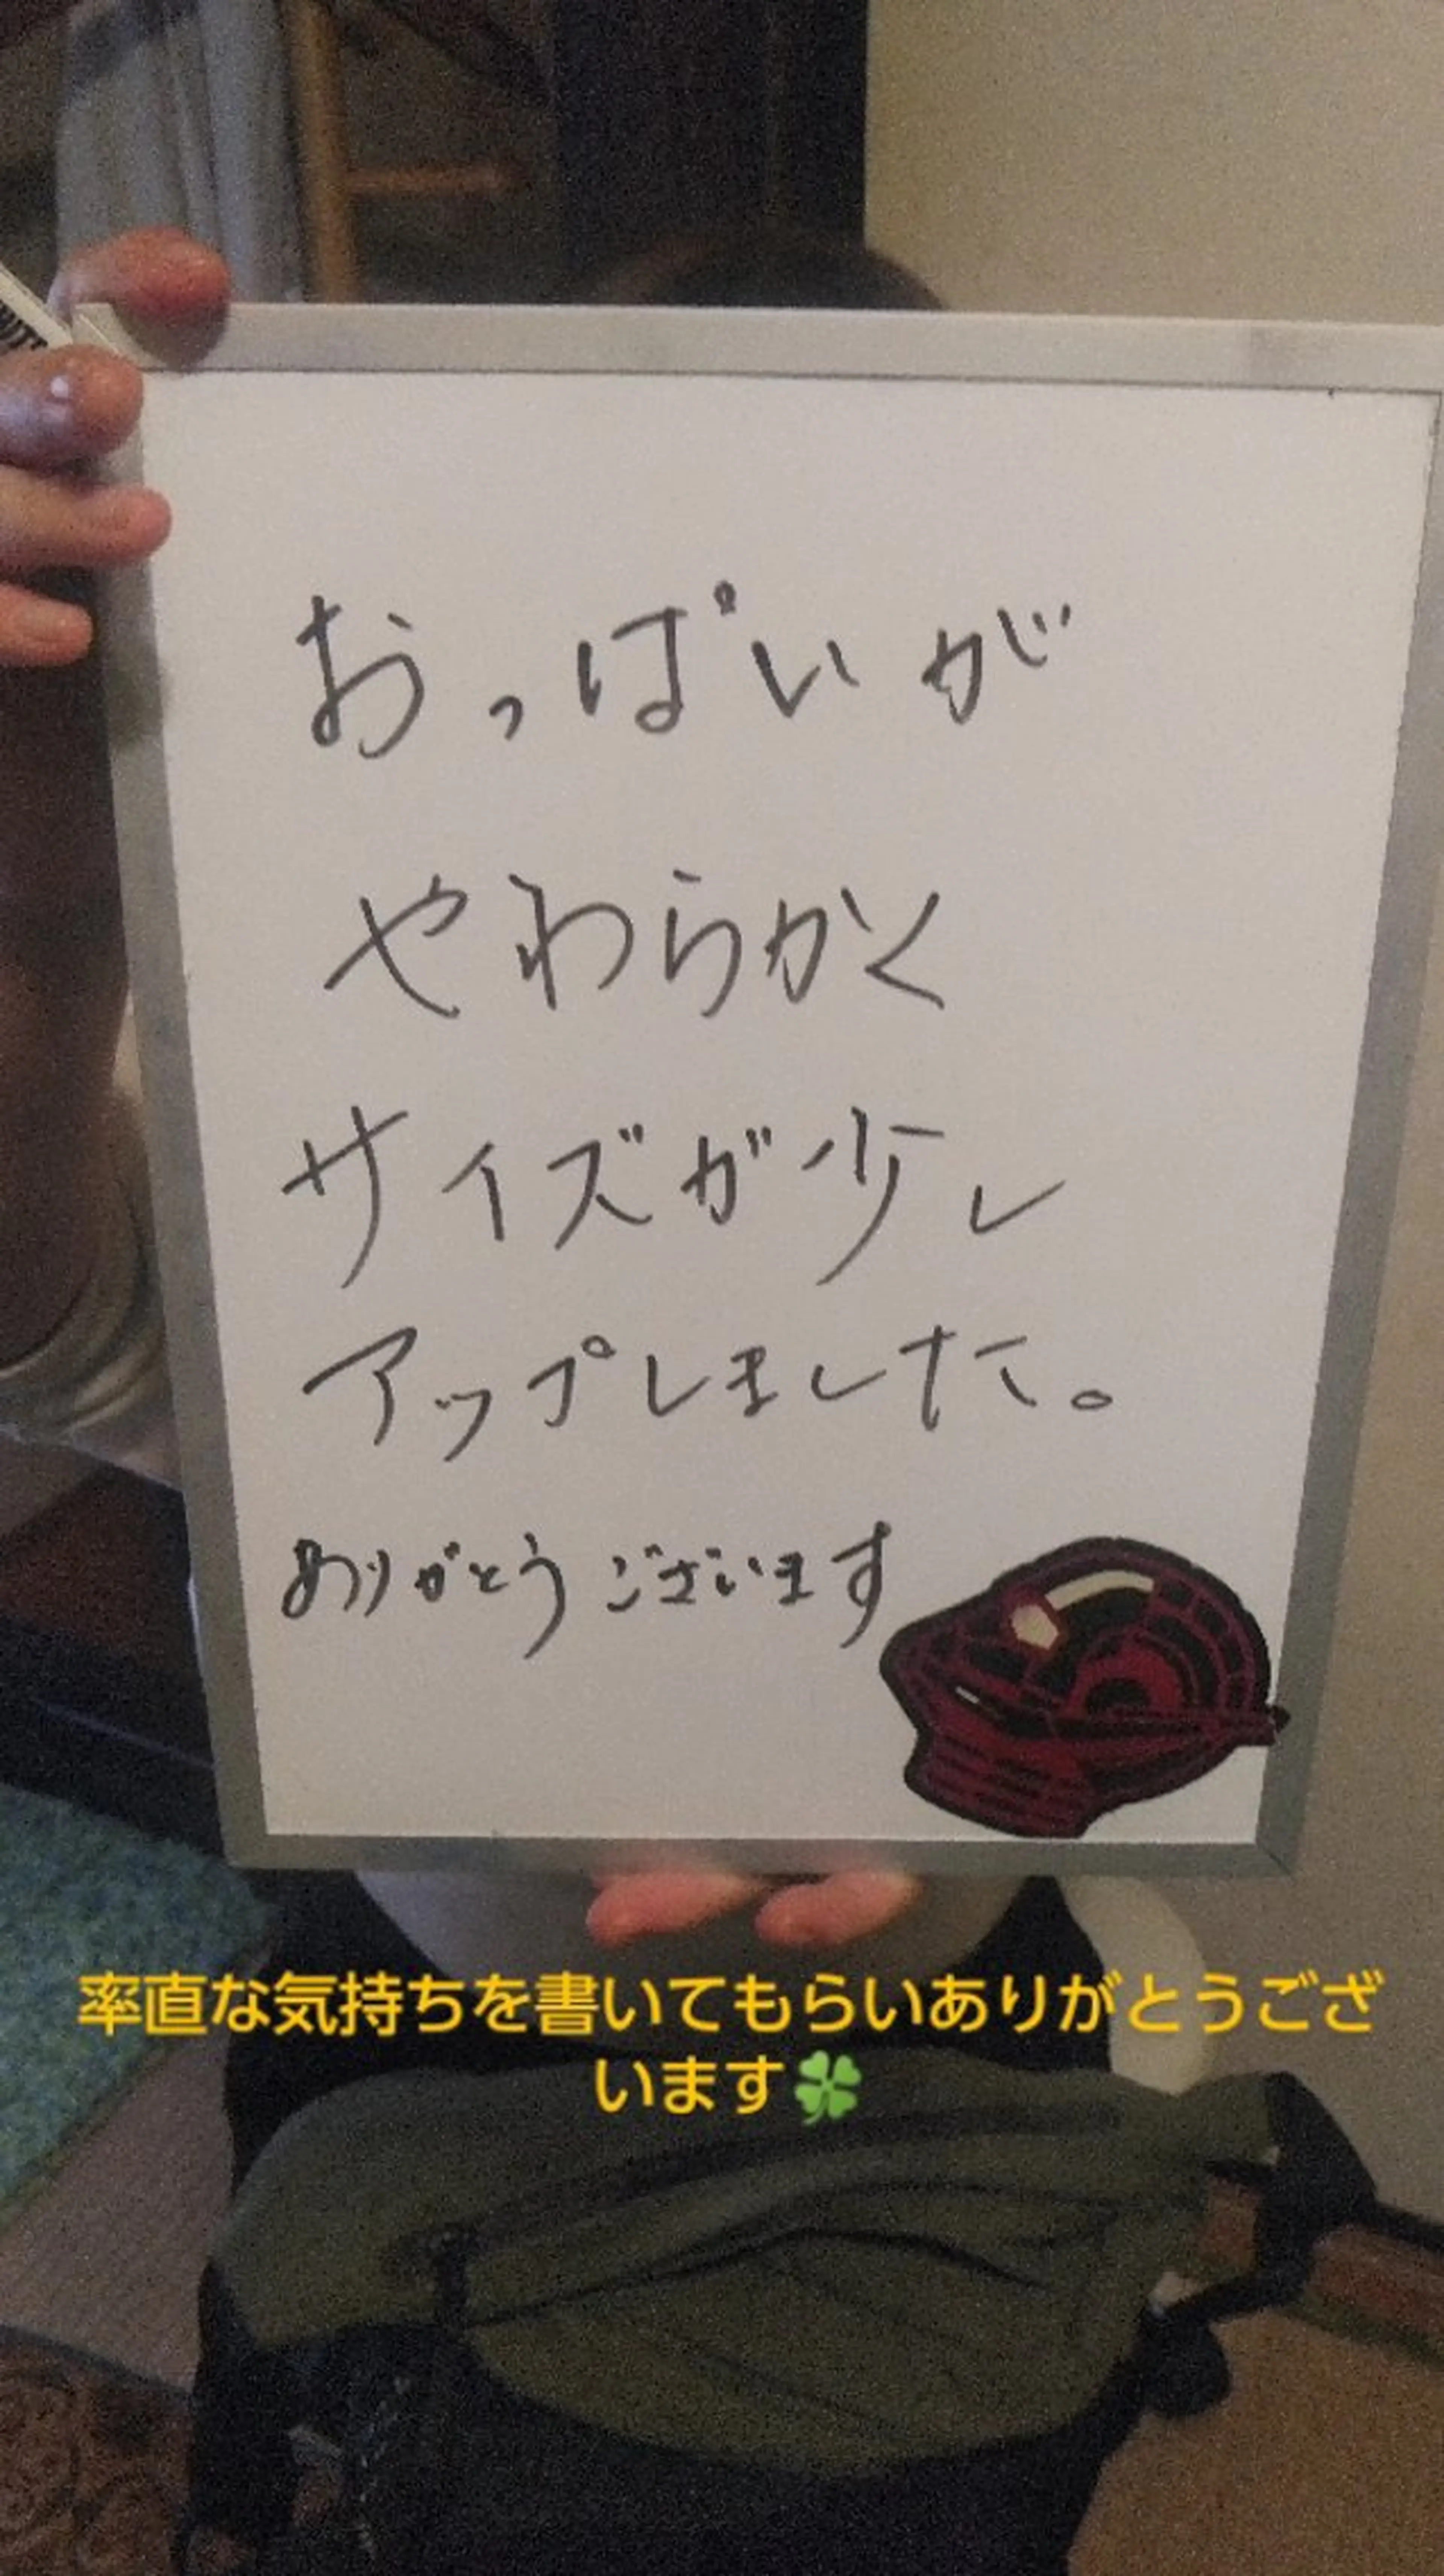 おっぱいが
やわらかく
サイズが少し
アップしました。
ありがとうございます
率直な気持ちを書いてもらいありがとうござ
います🍀